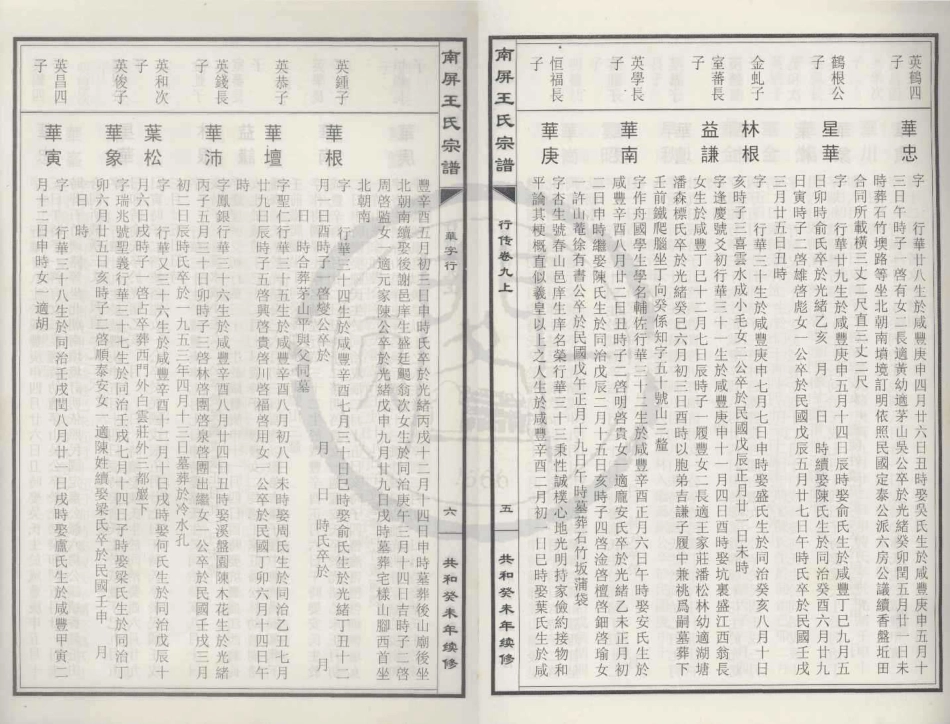 英鶴四
子
華忠
字　行華廿八生於咸豐庚申四月廿六日丑時娶吳氏生於咸豐庚申五月十
三日午時子一啓有女二長適黃幼適茅山吳公卒於光緒癸卯閏五月廿一日未
時葬石竹墺路等坐北朝南墳境訂明依照民國定泰公派六房公議續香盤坵田
合同所載橫三丈二尺直三丈二尺
鶴根公
子
星華
字　行華廿九生於咸豐庚申五月十四日辰時娶俞氏生於咸豐丁巳九月五
日卯時俞氏卒於光緒乙亥　月　日　時續娶陳氏生於同治癸酉六月廿九
日寅時子二啓雄啓彪女一公卒於民國戊辰五月廿七日午時氏卒於民國壬戌
三月廿五日丑時
金虬子
林根
字　行華三十生於咸豐庚申七月七日申時娶盛氏生於同治癸亥八月十日
亥時子三喜雲水成小毛女二公卒於民國戊辰正月廿一日未時
室蕃長
子
益謙
字逢慶號爻初行華三十一生於咸豐庚申十一月四日酉時娶坑裏盛江西翁長
女生於咸豐丁巳十二月七日辰時子一履豐女二長適王家莊潘松林幼適湖塘
潘森標氏卒於光緒癸巳六月初三日酉時以胞弟吉謙子履中兼桃爲嗣墓葬下
壬前鐵爬腦坐丁向癸係知字五十號山三釐
英學長
子
華南
字作舟國學生學名輔佐行華三十二生於咸豐辛酉正月六日午時娶安氏生於
咸豐辛酉八月廿二日丑時子二啓明啓貴女一適龐安氏卒於光緒乙未正月初
二日申時繼娶陳氏生於同治戊辰二月十五日亥時子四啓淦啓檀啓鈿啓瑜女
一許山菴徐有書公卒於民國戊午正月十九日午時墓葬石竹坂蒲袋
恒福長
子
華庚
字杏生號春山邑庠生庠名榮行華三十三秉性誠樸心地光明持家儉約接物和
平論其梗概直似羲皇以上之人生於咸豐辛酉二月初一日巳時娶葉氏生於咸
南屏王氏宗譜
行传卷九上
五
共和癸未年续修
南屏王氏宗譜
華字行
六
共和癸未年续修
豐辛酉五月初三日申時氏卒於光緒丙戌十二月十四日申時墓葬後山廟後坐
北朝南續娶後謝邑庠生盛廷颺翁次女生於同治庚午三月十四日吉時子二啓
周啓監女一適元家陳公卒於光緒戊申九月廿九日戌時墓葬宅樣山腳西首坐
北朝南
英鍾子
華根
字　行華三十四生於咸豐辛酉七月三十日巳時娶俞氏生於光緒丁丑十二
月一日酉時子一啓燮公卒於　月　日　時氏卒於　月
日　時合葬茅山平與父同墓
英恭子
華壇
字聖仁行華三十五生於咸豐辛酉八月初八日未時娶周氏生於同治乙丑七月
廿九日辰時子五啓興啓貴啓川啓福啓用女一公卒於民國丁卯六月十四日午
時
英錢長
子
華沛
字鳳銀行華三十六生於咸豐辛酉八月廿四日丑時娶溪盤園陳木花生於光緒
丙子五月三十日卯時子三啓林啓團啓泉啓團出繼女一公卒於民國壬戌三月
初二日辰時氏卒於一九五三年四月十三日墓葬於冷水孔
英和次
子
葉松
字　行華三十六又生於咸豐辛酉十二月十日戌時娶何氏生於同治戊辰十
月六日戌時子一啓占卒葬西門外白雲莊外三都巖下
英俊子
華象
字瑞兆號聖義行華三十七生於同治壬戌七月十四日子時娶梁氏生於同治丁
卯六月廿五日亥時子二啓順泰安女一適陳姓續娶梁氏卒於民國壬申　月
日　時
英昌四
子
華寅
字　行華三十八生於同治壬戌閏八月廿一日戌時娶盧氏生於咸豐甲寅二
月十二日申時女一適胡